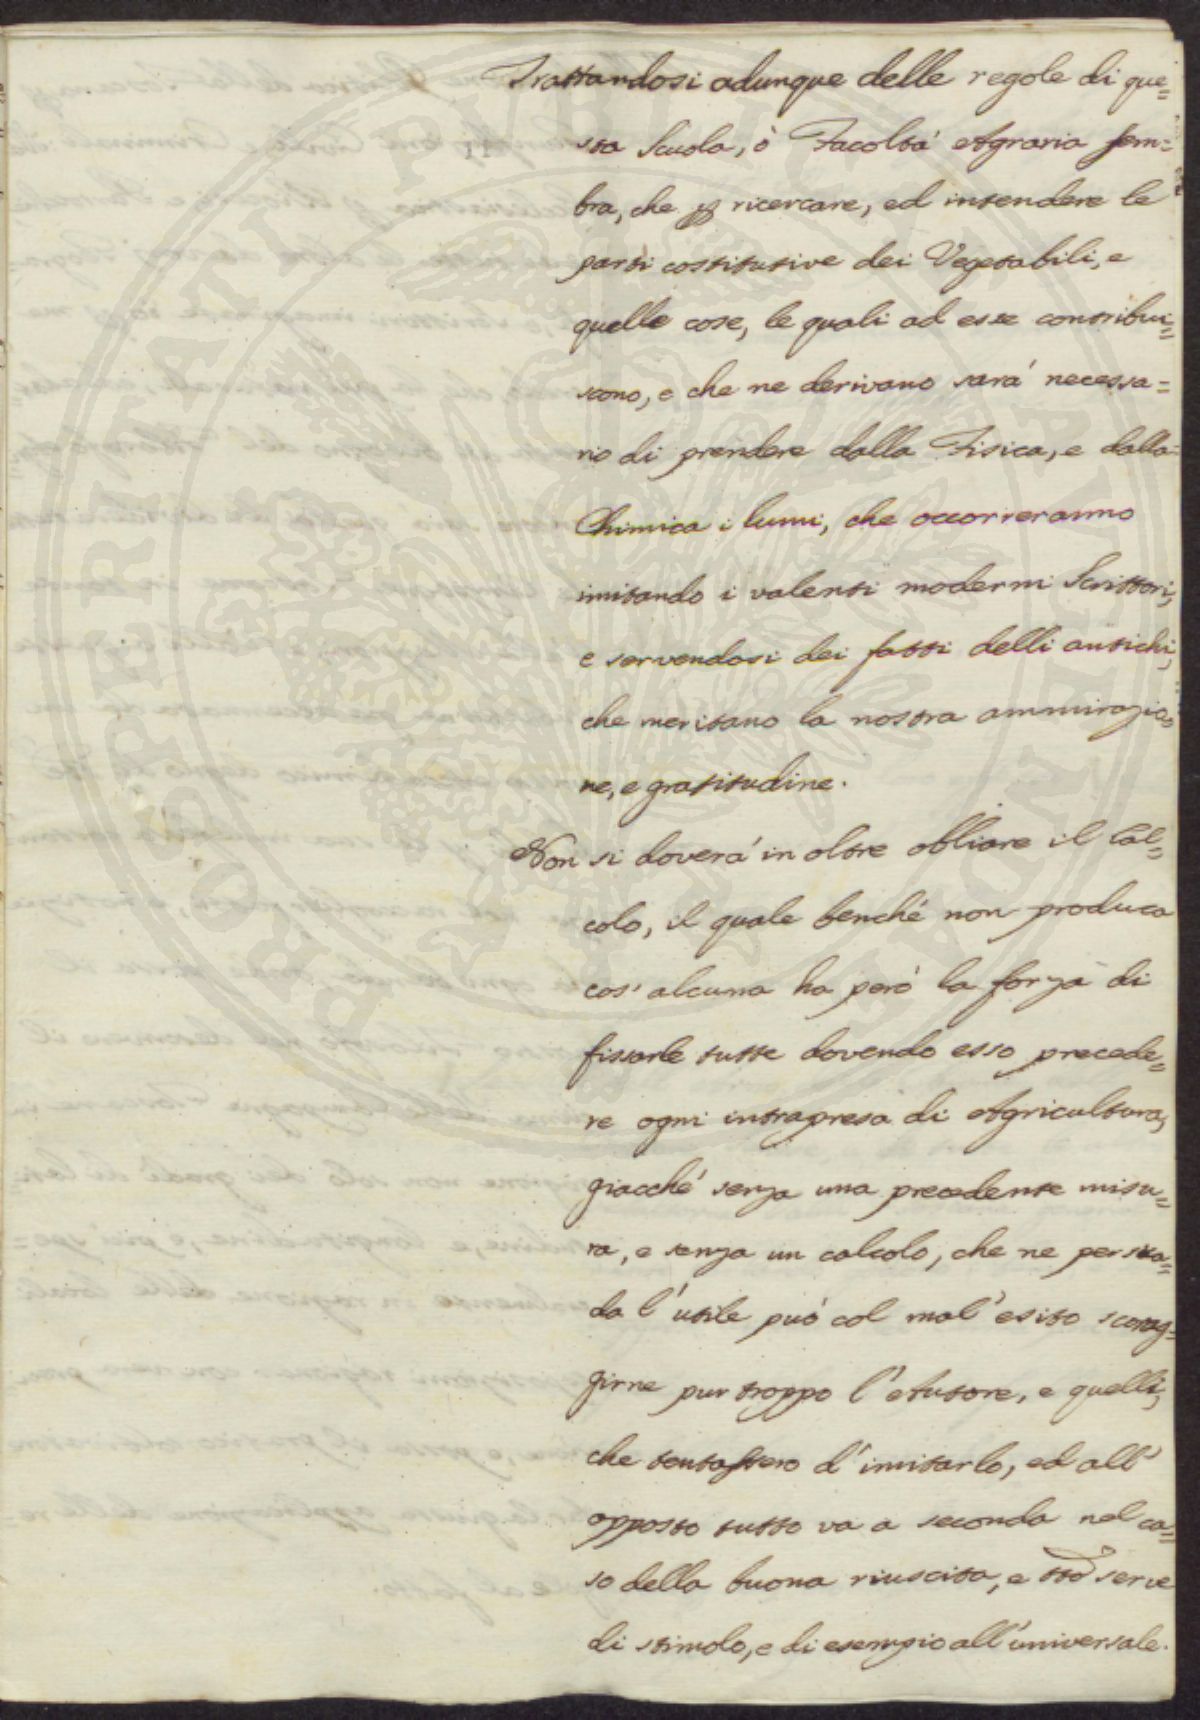 Trattandosi adunque delle regole di que=
sta Scuola, ò Facoltá Agraria sem=
bra, che p ricercare, ed intendere le
parti costitutive dei Vegetabili, e
quelle cose, le quali ad esse contribui=
scono, e che ne derivano sará necessa=
rio di prendere dalla Fisica, e dalla
Chimica i lumi, che occorreranno
imitando i valenti moderni Scrittori,
e servendosi dei fatti delli antichi,
che meritano la nostra ammirazio=
ne, e gratitudine.
Non si doverá in oltre obliare il Cal=
colo, il quale benché non produca
cos' alcuna ha peró la forza di
fissarle tutte dovendo esso precede=
re ogni intrapresa di Agricultura,
giacché senza una precedente misu=
ra, e senza un calcolo, che ne persua=
da l'utile puó col mal'esito scorag=
girne pur troppo l'Autore, e quelli,
che tentassero d'imitarlo, ed all'
opposto tutto va a seconda nel ca=
so della buona riuscita, e tto serve
di stimolo, e di esempio all'universale.
PROPERITATI PVBLICAE AVGENDAE